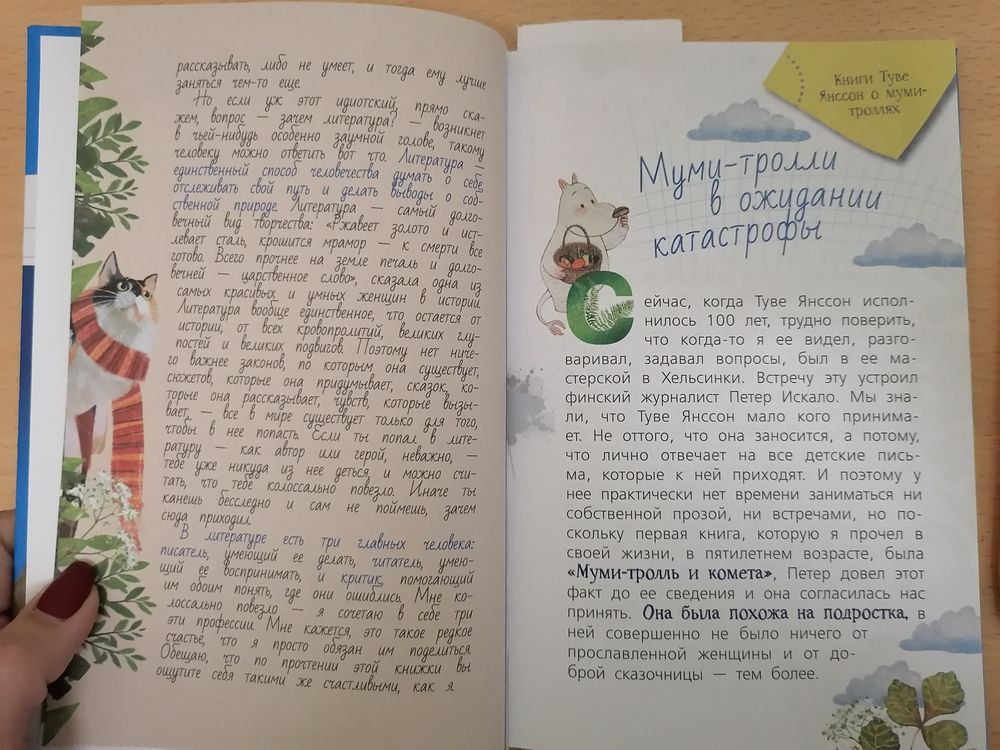 рассказывать, либо не умеет, и тогда ему лучше
заняться чем-то еще.
Но если уж этот идиотский, прямо ска-
жем, вопрос — зачем литература? — возникнет
в чьей-нибудь особенно заумной голове, такому
человеку можно ответить вот что. Литература —
единственный способ человечества думать о себе,
отслеживать свой путь и делать выводы о соб-
ственной природе. Литература — самый долго-
вечный вид творчества: «Ржавеет золото и ист-
левает сталь, крошится мрамор — к смерти все
готово. Всего прочнее на земле печаль и долго-
вечней — царственное слово», сказала одна из
самых красивых и умных женщин в истории.
Литература вообще единственное, что остается от
истории, от всех кровопролитий, великих глу-
постей и великих подвигов. Поэтому нет ниче-
го важнее законов, по которым она существует,
сюжетов, которые она придумывает, сказок, ко-
торые она рассказывает, чувств, которые вызы-
вает, — все в мире существует только для того,
чтобы в нее попасть. Если ты попал в лите-
ратуру — как автор или герой, неважно, —
тебе уже никуда из нее не деться, и можно счи-
тать, что тебе колоссально повезло. Иначе ты
канешь бесследно и сам не поймешь, зачем
сюда приходил.
В литературе есть три главных человека:
писатель, умеющий ее делать, читатель, умею-
щий ее воспринимать, и критик, помогающий
им обоим понять, где они ошиблись. Мне ко-
лоссально повезло — я сочетаю в себе три
эти профессии. Мне кажется, это такое редкое
счастье, что я просто обязан им поделиться.
Обещаю, что по прочтении этой книжки вы
ощутите себя такими же счастливыми, как я.
Книги Туве
Янссон о муми-
троллях
Муми-тролли
в ожидании
катастрофы
Сейчас, когда Туве Янссон испол-
нилось 100 лет, трудно поверить,
что когда-то я ее видел, разго-
варивал, задавал вопросы, был в ее ма-
стерской в Хельсинки. Встречу эту устроил
финский журналист Петер Искало. Мы зна-
ли, что Туве Янссон мало кого принима-
ет. Не оттого, что она заносится, а потому,
что лично отвечает на все детские пись-
ма, которые к ней приходят. И поэтому у
нее практически нет времени заниматься ни
собственной прозой, ни встречами, но по-
скольку первая книга, которую я прочел в
своей жизни, в пятилетнем возрасте, была
«Муми-тролль и комета», Петер довел этот
факт до ее сведения и она согласилась нас
принять. Она была похожа на подростка, в
ней совершенно не было ничего от
прославленной женщины и от до-
брой сказочницы — тем более.